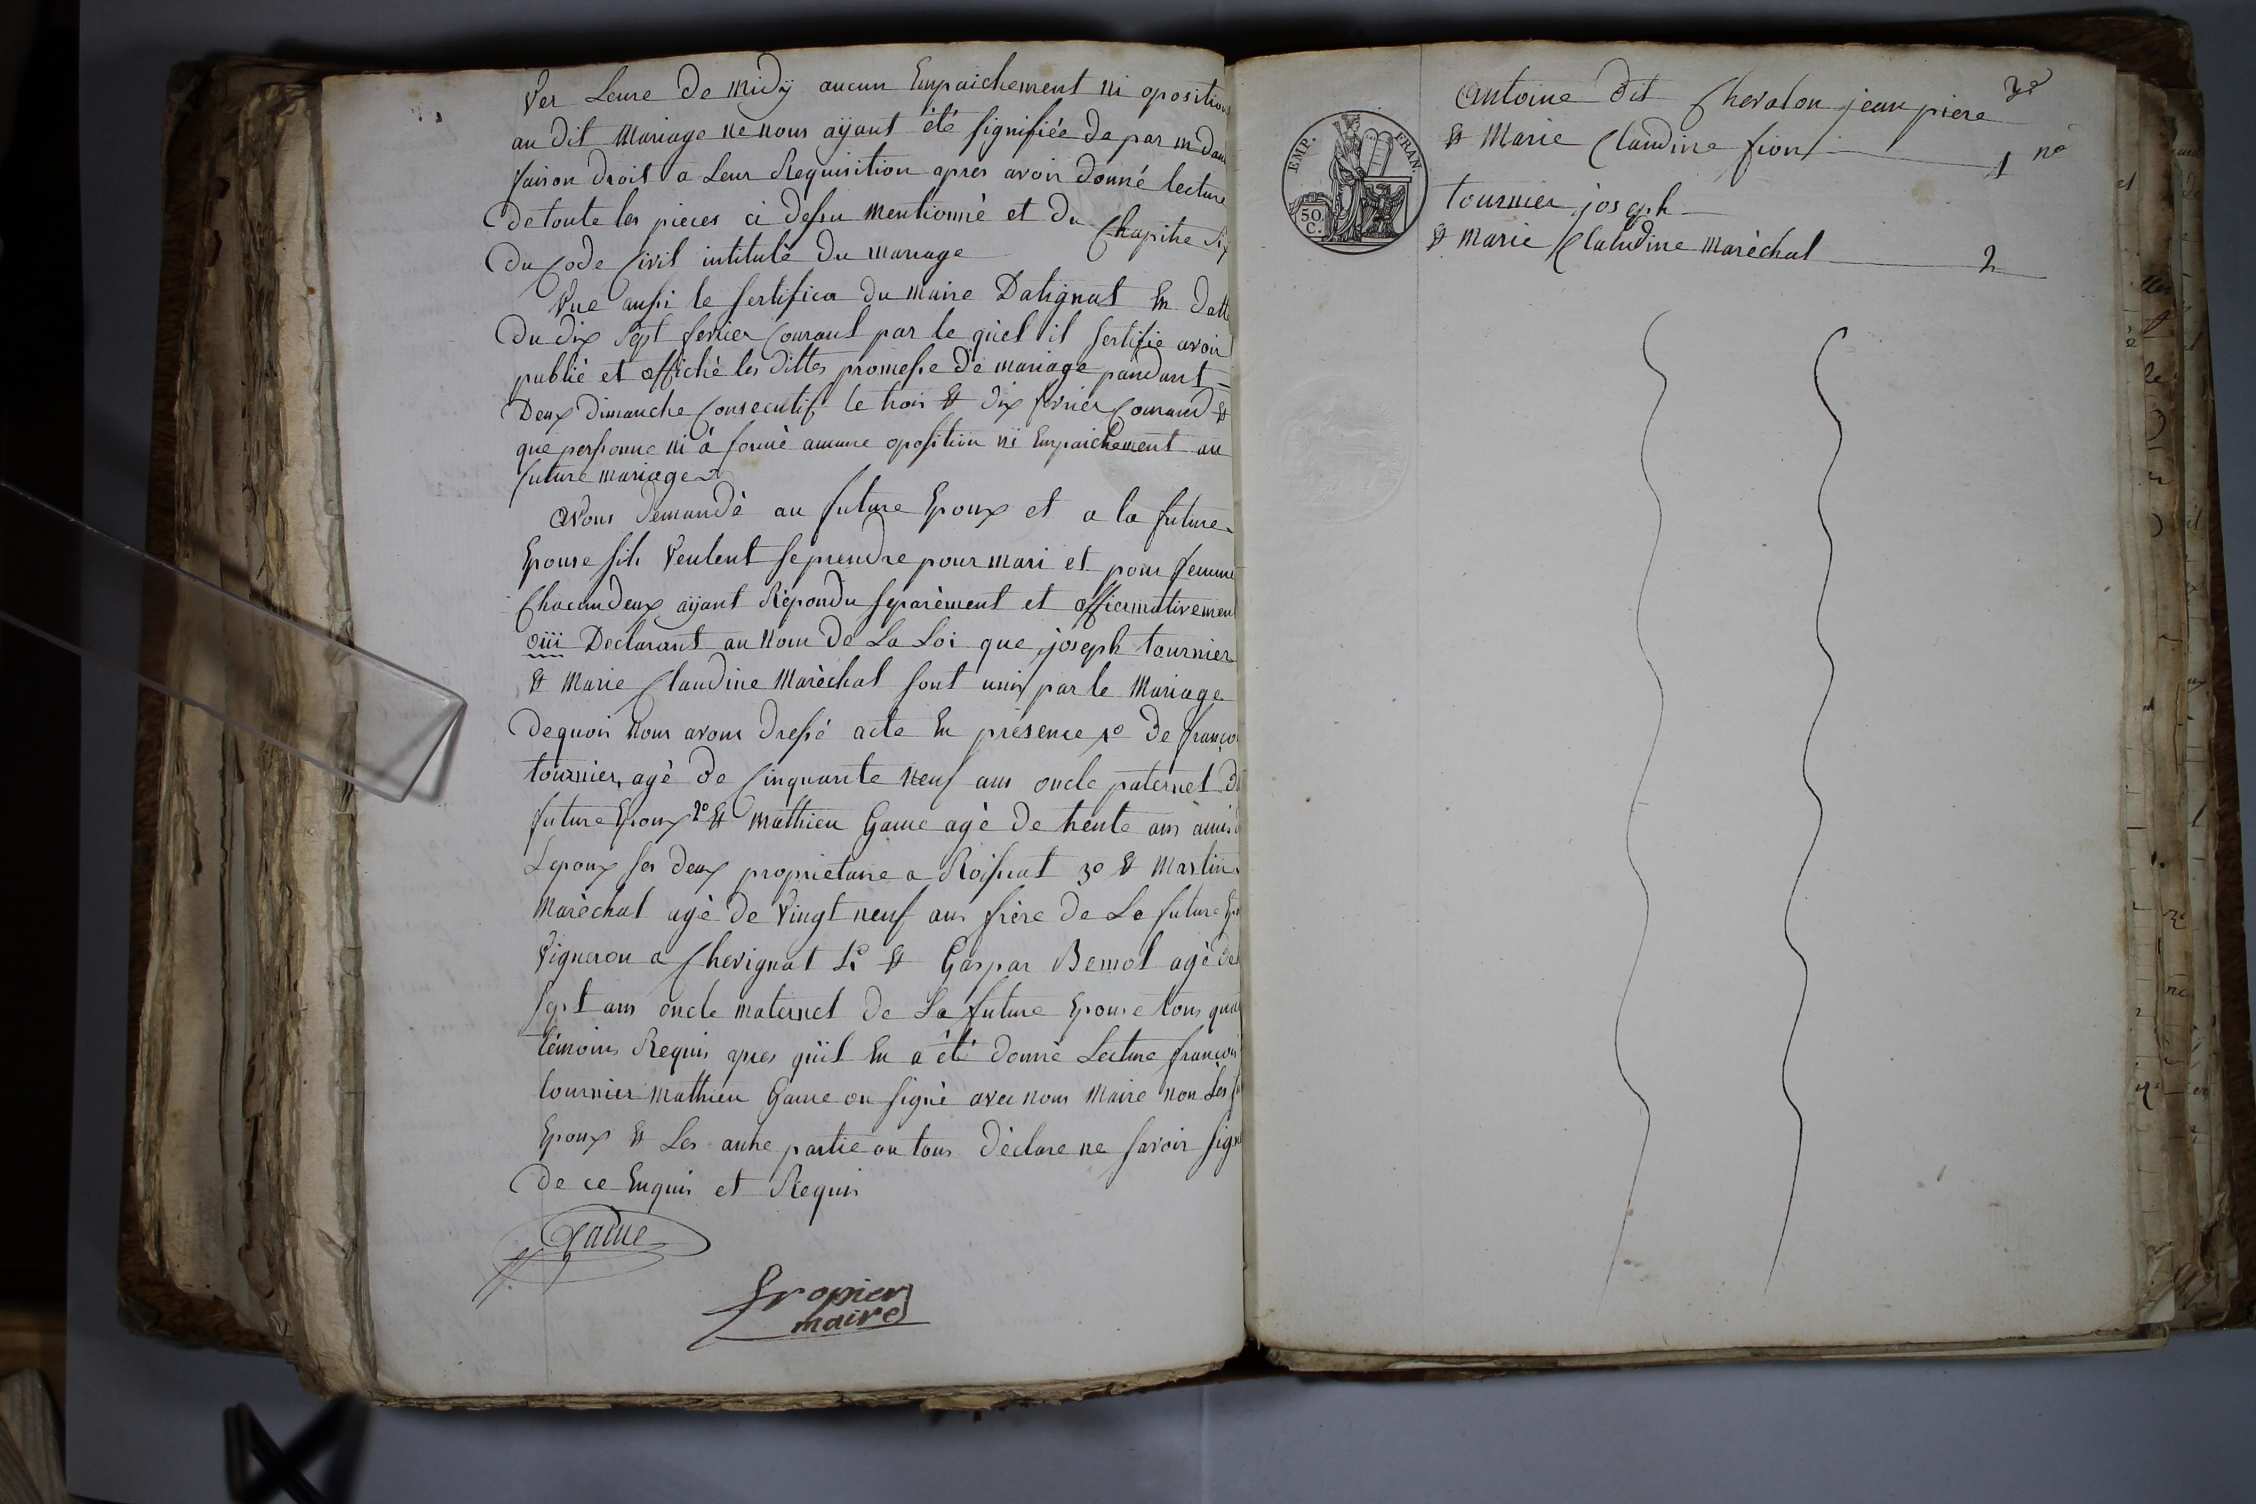 Ver Leure de midÿ aucun Empaichement ni oposition
au dit mariage ne nous aÿant été signifiée de par m dans
faison droit a Leur Requisition apres avoir donné lecture
de toute les pieces ci dessu mentionnè et du Chapitre Six
du Code Civil intitulé du mariage
Vue aussi le sertifica du maire Datignat En datte
du dix sept fevrier Courant par le quel il sertifie avoir
publié et affichè les dittes promesse de mariage pandant
Deux dimanche Consecutif le trois & dix fevrier Courand &
que personne ni à formè aucune oposition ni Empaichement au
future mariage
avons demandè au future Epoux et a la future
Epouse sils veulent se prendre pour mari et pour femme
Chacun deux aÿant Répondu separèment et affiermativement
oüi Declarant au nom de La Loi que joseph tournier
& marie Claudine Marèchal sont unis par le Mariage
de quoi nous avons dressé acte En presence 1o de françois
tournier agè de Cinquante neuf ans oncle paternel du
future Epoux 2o & mathieu Game agè de trente ans amis d
Lepoux ses deux proprietaire a Roissiat 3o & Martin
Marèchal agè de Vingt neuf ans frère de La future Epou
Vigneron a Chevignat 4o & Gaspar Bemol agè de
sept ans oncle maternel de La future Epouse tous quat
témoins Requis apres quil En a été donnè Lecture françois
tournier mathieu Game on signè avec nous Maire non Les f
Epoux & Les autre partie on tous dèclare ne savoir sign
de ce Enquis et Requis
Game
fropier
maire
EMP. FRAN.
50 C.
Antoine dit Chevalon jean piere
& Marie Claudine fion 1 no
tournier joseph
& marie Claudine marèchal 2